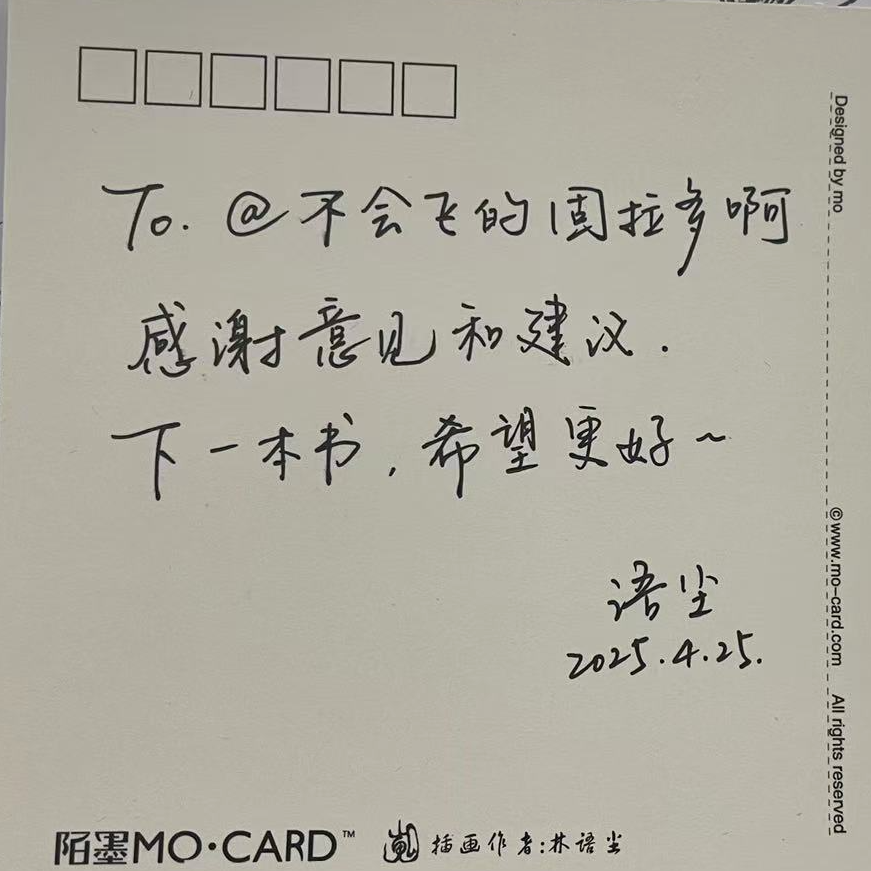 To. @不会飞的固拉多啊
感谢意见和建议.
下一本书,希望更好~
语尘
2025.4.25.
陌墨MO·CARD™
插画作者:林语尘
Designed by mo
©www.mo-card.com
All rights reserved